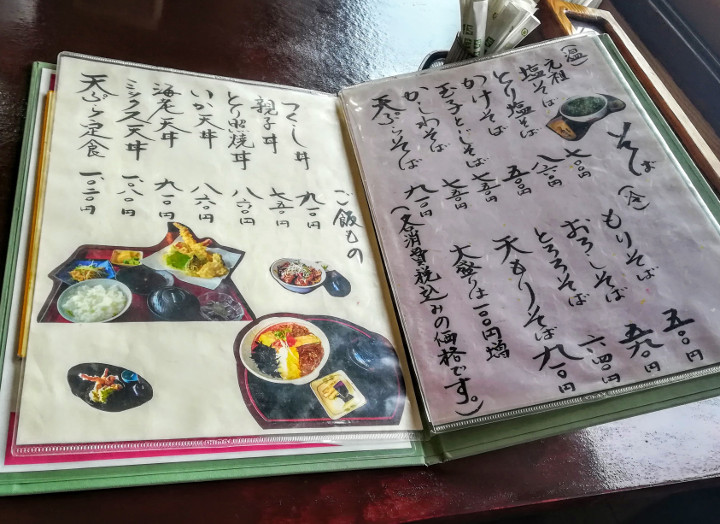 そば
(温)
元祖
塩そば 七〇〇円
とり塩そば 八六〇円
かけそば 五〇〇円
玉子とじそば 七五〇円
かしわそば 七五〇円
天ぷらそば 九一〇円
(冷)
もりそば 五〇〇円
おろしそば 五九〇円
とろろそば 六四〇円
天もりそば 九一〇円
大盛りは一〇〇円増
(各消費税込みの価格です。)
ご飯もの
つくし丼 九一〇円
親子丼 七五〇円
とり照焼丼 八六〇円
いか天丼 八六〇円
海老天丼 九一〇円
ミックス天丼 一〇八〇円
天ぷら定食 一〇二〇円